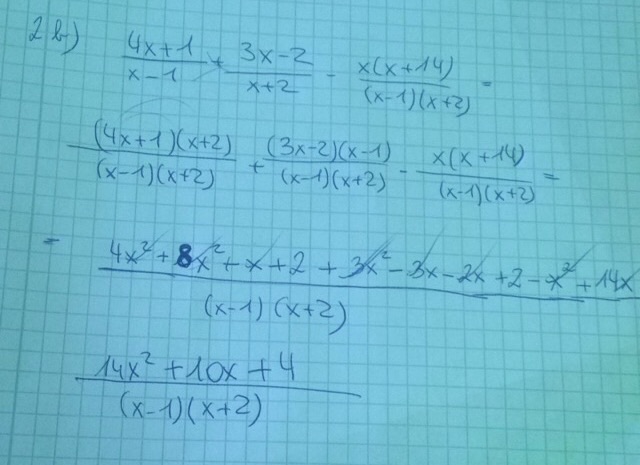 2 b) (4x+1)/(x-1) + (3x-2)/(x+2) - x(x+14)/((x-1)(x+2)) =
((4x+1)(x+2))/((x-1)(x+2)) + ((3x-2)(x-1))/((x-1)(x+2)) - x(x+14)/((x-1)(x+2)) =
= (4x² + 8x² + x + 2 + 3x² - 3x - 2x + 2 - x² + 14x)/((x-1)(x+2))
(14x² + 10x + 4)/((x-1)(x+2))